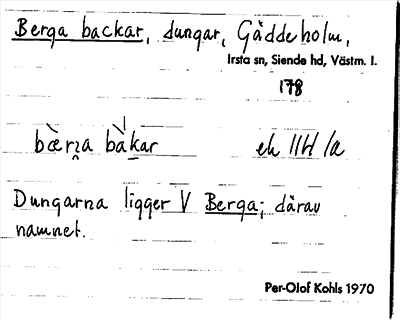 Berga backar, dungar, Gäddeholm,
Irsta sn, Siende hd, Västm. l.
178
Dungarna ligger V Berga; därav
namnet.
Per-Olof Kohls 1970